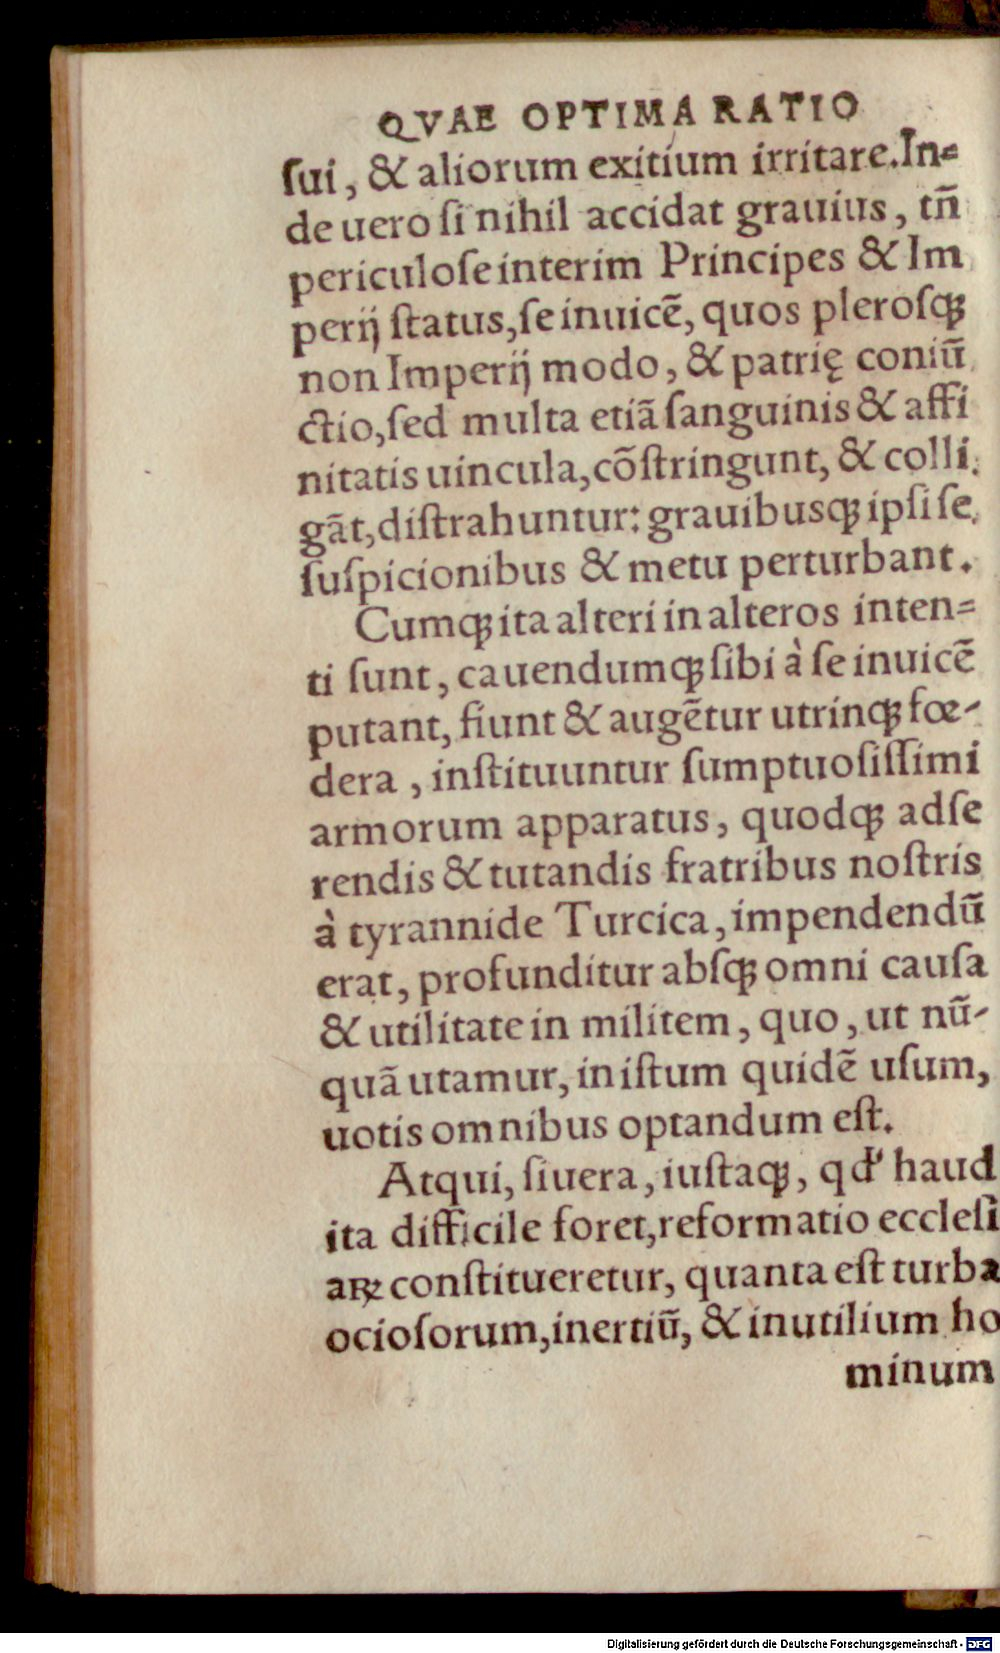 QVAE OPTIMA RATIO
ſui, & aliorum exitium irritare. In⸗
de uero ſi nihil accidat grauius, tñ
periculoſe interim Principes & Im
perij ſtatus, ſe inuicẽ, quos pleroſqꝫ
non Imperij modo, & patrię coniũ
ctio, ſed multa etiã ſanguinis & affi
nitatis uincula, cõſtringunt, & colli
gãt, diſtrahuntur: grauibusqꝫ ipſi ſe
ſuſpicionibus & metu perturbant.
Cumqꝫ ita alteri in alteros inten⸗
ti ſunt, cauendumqꝫ ſibi à ſe inuicẽ
putant, fiunt & augẽtur utrinqꝫ fœ-
dera, inſtituuntur ſumptuoſiſſimi
armorum apparatus, quodqꝫ adſe
rendis & tutandis fratribus noſtris
à tyrannide Turcica, impendendũ
erat, profunditur abſqꝫ omni cauſa
& utilitate in militem, quo, ut nũ-
quã utamur, in iſtum quidẽ uſum,
uotis omnibus optandum eſt.
Atqui, ſi uera, iuſtaqꝫ, qd' haud
ita difficile foret, reformatio eccleſi
aꝝ conſtitueretur, quanta eſt turba
ocioſorum, inertiũ, & inutilium ho
minum
Digitalisierung gefördert durch die Deutsche Forschungsgemeinschaft - DFG